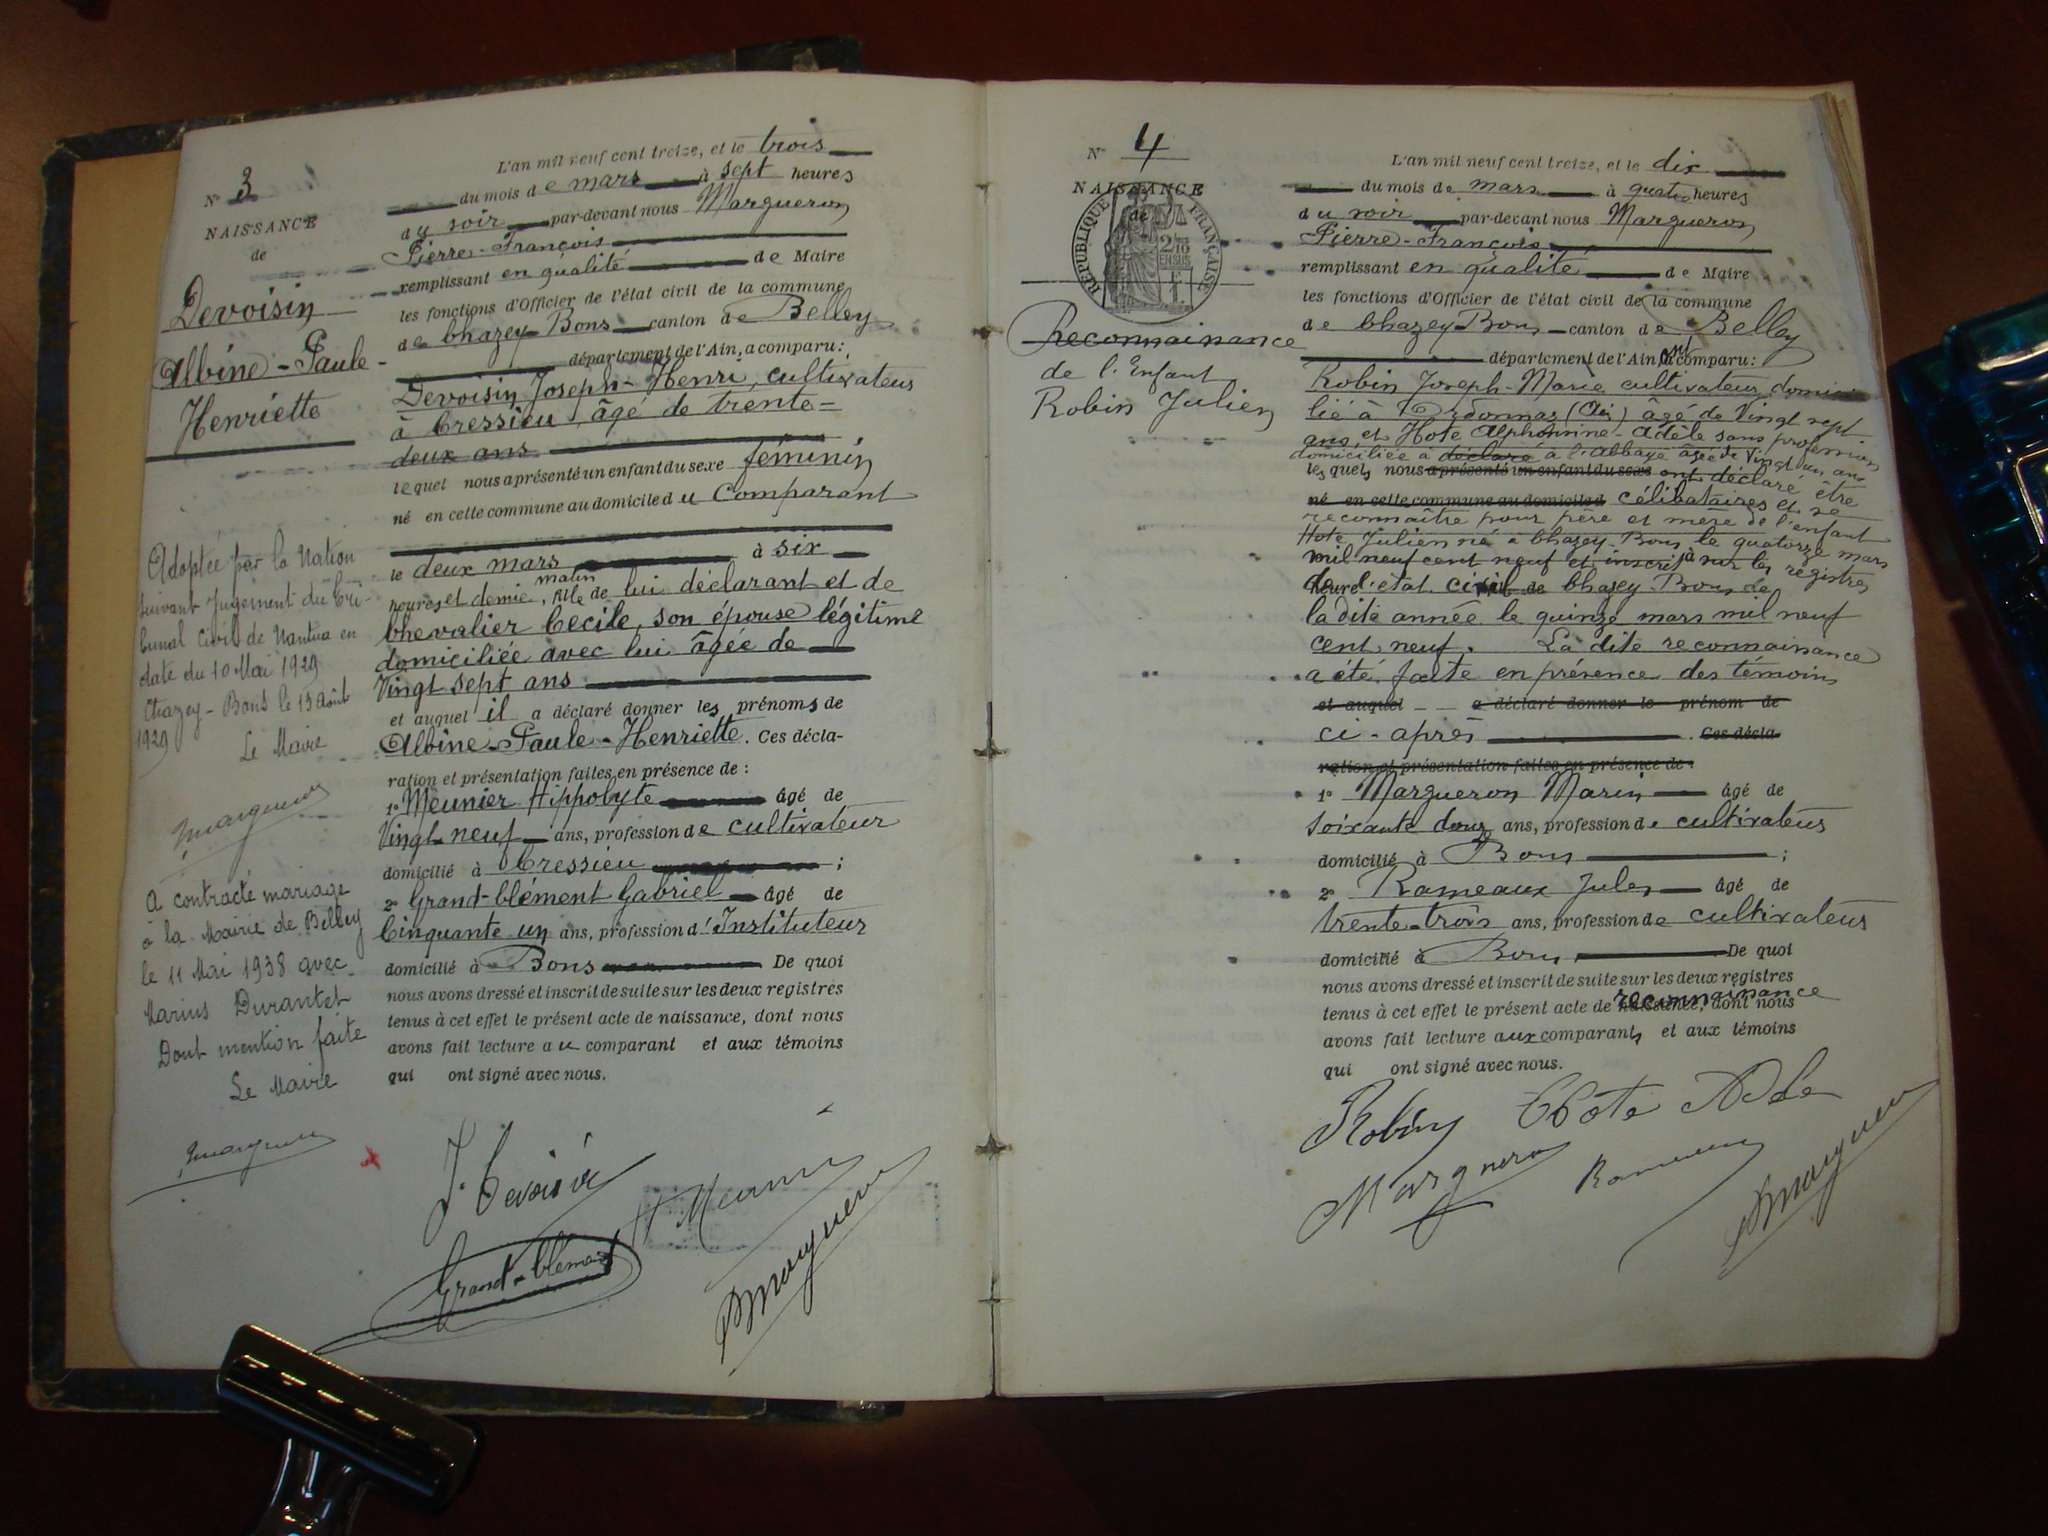 N° 3
NAISSANCE
de
Devoisin
Albine-Paule-
Henriette
Adoptée par la Nation
suivant Jugement du Tri-
bunal Civil de Nantua en
date du 10 Mai 1929
Chazey-Bons le 13 août
1929
Le Maire
Margueron
A contracté mariage
à la Mairie de Belley
le 11 Mai 1938 avec
Marius Durantet
Dont mention faite
Le Maire
Margueron
L'an mil neuf cent treize, et le trois
du mois de mars à sept heures
du soir par-devant nous Margueron
Pierre-François
remplissant en qualité de Maire
les fonctions d'Officier de l'état civil de la commune
de Chazey-Bons canton de Belley
département de l'Ain, a comparu:
Devoisin Joseph-Henri, cultivateur
à Cressieu, âgé de trente-
deux ans
lequel nous a présenté un enfant du sexe féminin
né en cette commune au domicile du Comparant
le deux mars à six
heures et demie matin, fille de lui déclarant et de
Chevalier Cécile, son épouse légitime
domiciliée avec lui âgée de
Vingt sept ans
et auquel il a déclaré donner les prénoms de
Albine-Paule-Henriette. Ces décla-
ration et présentation faites en présence de :
1° Meunier Hippolyte âgé de
Vingt-neuf ans, profession de cultivateur
domicilié à Cressieu ;
2° Grand-Clément Gabriel âgé de
Cinquante un ans, profession d'Instituteur
domicilié à Bons De quoi
nous avons dressé et inscrit de suite sur les deux registres
tenus à cet effet le présent acte de naissance, dont nous
avons fait lecture au comparant et aux témoins
qui ont signé avec nous.
J. Devoisin
H Meunier
Grand-Clément
Margueron
N° 4
NAISSANCE
de
RÉPUBLIQUE FRANÇAISE
2/10
EN SUS
Reconnaissance
de l'Enfant
Robin Julien
L'an mil neuf cent treize, et le dix
du mois de mars à quatre heures
du soir par-devant nous Margueron
Pierre-François
remplissant en qualité de Maire
les fonctions d'Officier de l'état civil de la commune
de Chazey-Bons canton de Belley
département de l'Ain, ont comparu:
Robin Joseph-Marie cultivateur, domici
lié à Ordonnas (Ain) âgé de Vingt sept
ans et Hote Alphonsine-Adèle sans profession
domiciliée à déclaré à l'Abbaye âgée de Vingt un ans
lesquels nous a présenté un enfant du sexe ont déclaré être
né en cette commune au domicile d célibataires et se
reconnaître pour père et mère de l'enfant
Hote Julien né à Chazey-Bons le quatorze mars
mil neuf cent neuf et inscrit à sur les registres
heure de l'état civil de Chazey-Bons de
la dite année le quinze mars mil neuf
cent neuf. La dite reconnaissance
a été faite en présence des témoins
et auquel a déclaré donner le prénom de
ci-après . Ces décla-
ration et présentation faites en présence de :
1° Margueron Marin âgé de
soixante douze ans, profession de cultivateur
domicilié à Bons ;
2° Rameaux Jules âgé de
trente-trois ans, profession de cultivateur
domicilié à Bons De quoi
nous avons dressé et inscrit de suite sur les deux registres
tenus à cet effet le présent acte de naissance, reconnaissance dont nous
avons fait lecture aux comparants et aux témoins
qui ont signé avec nous.
Robin Hote Adèle
Margueron Rameaux
Margueron